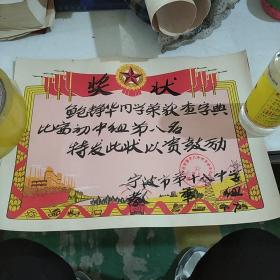 奖状
鲍静华同学荣获查字典
比赛初中组第八名
特发此状以资鼓励
宁波市第十八中学
教 组